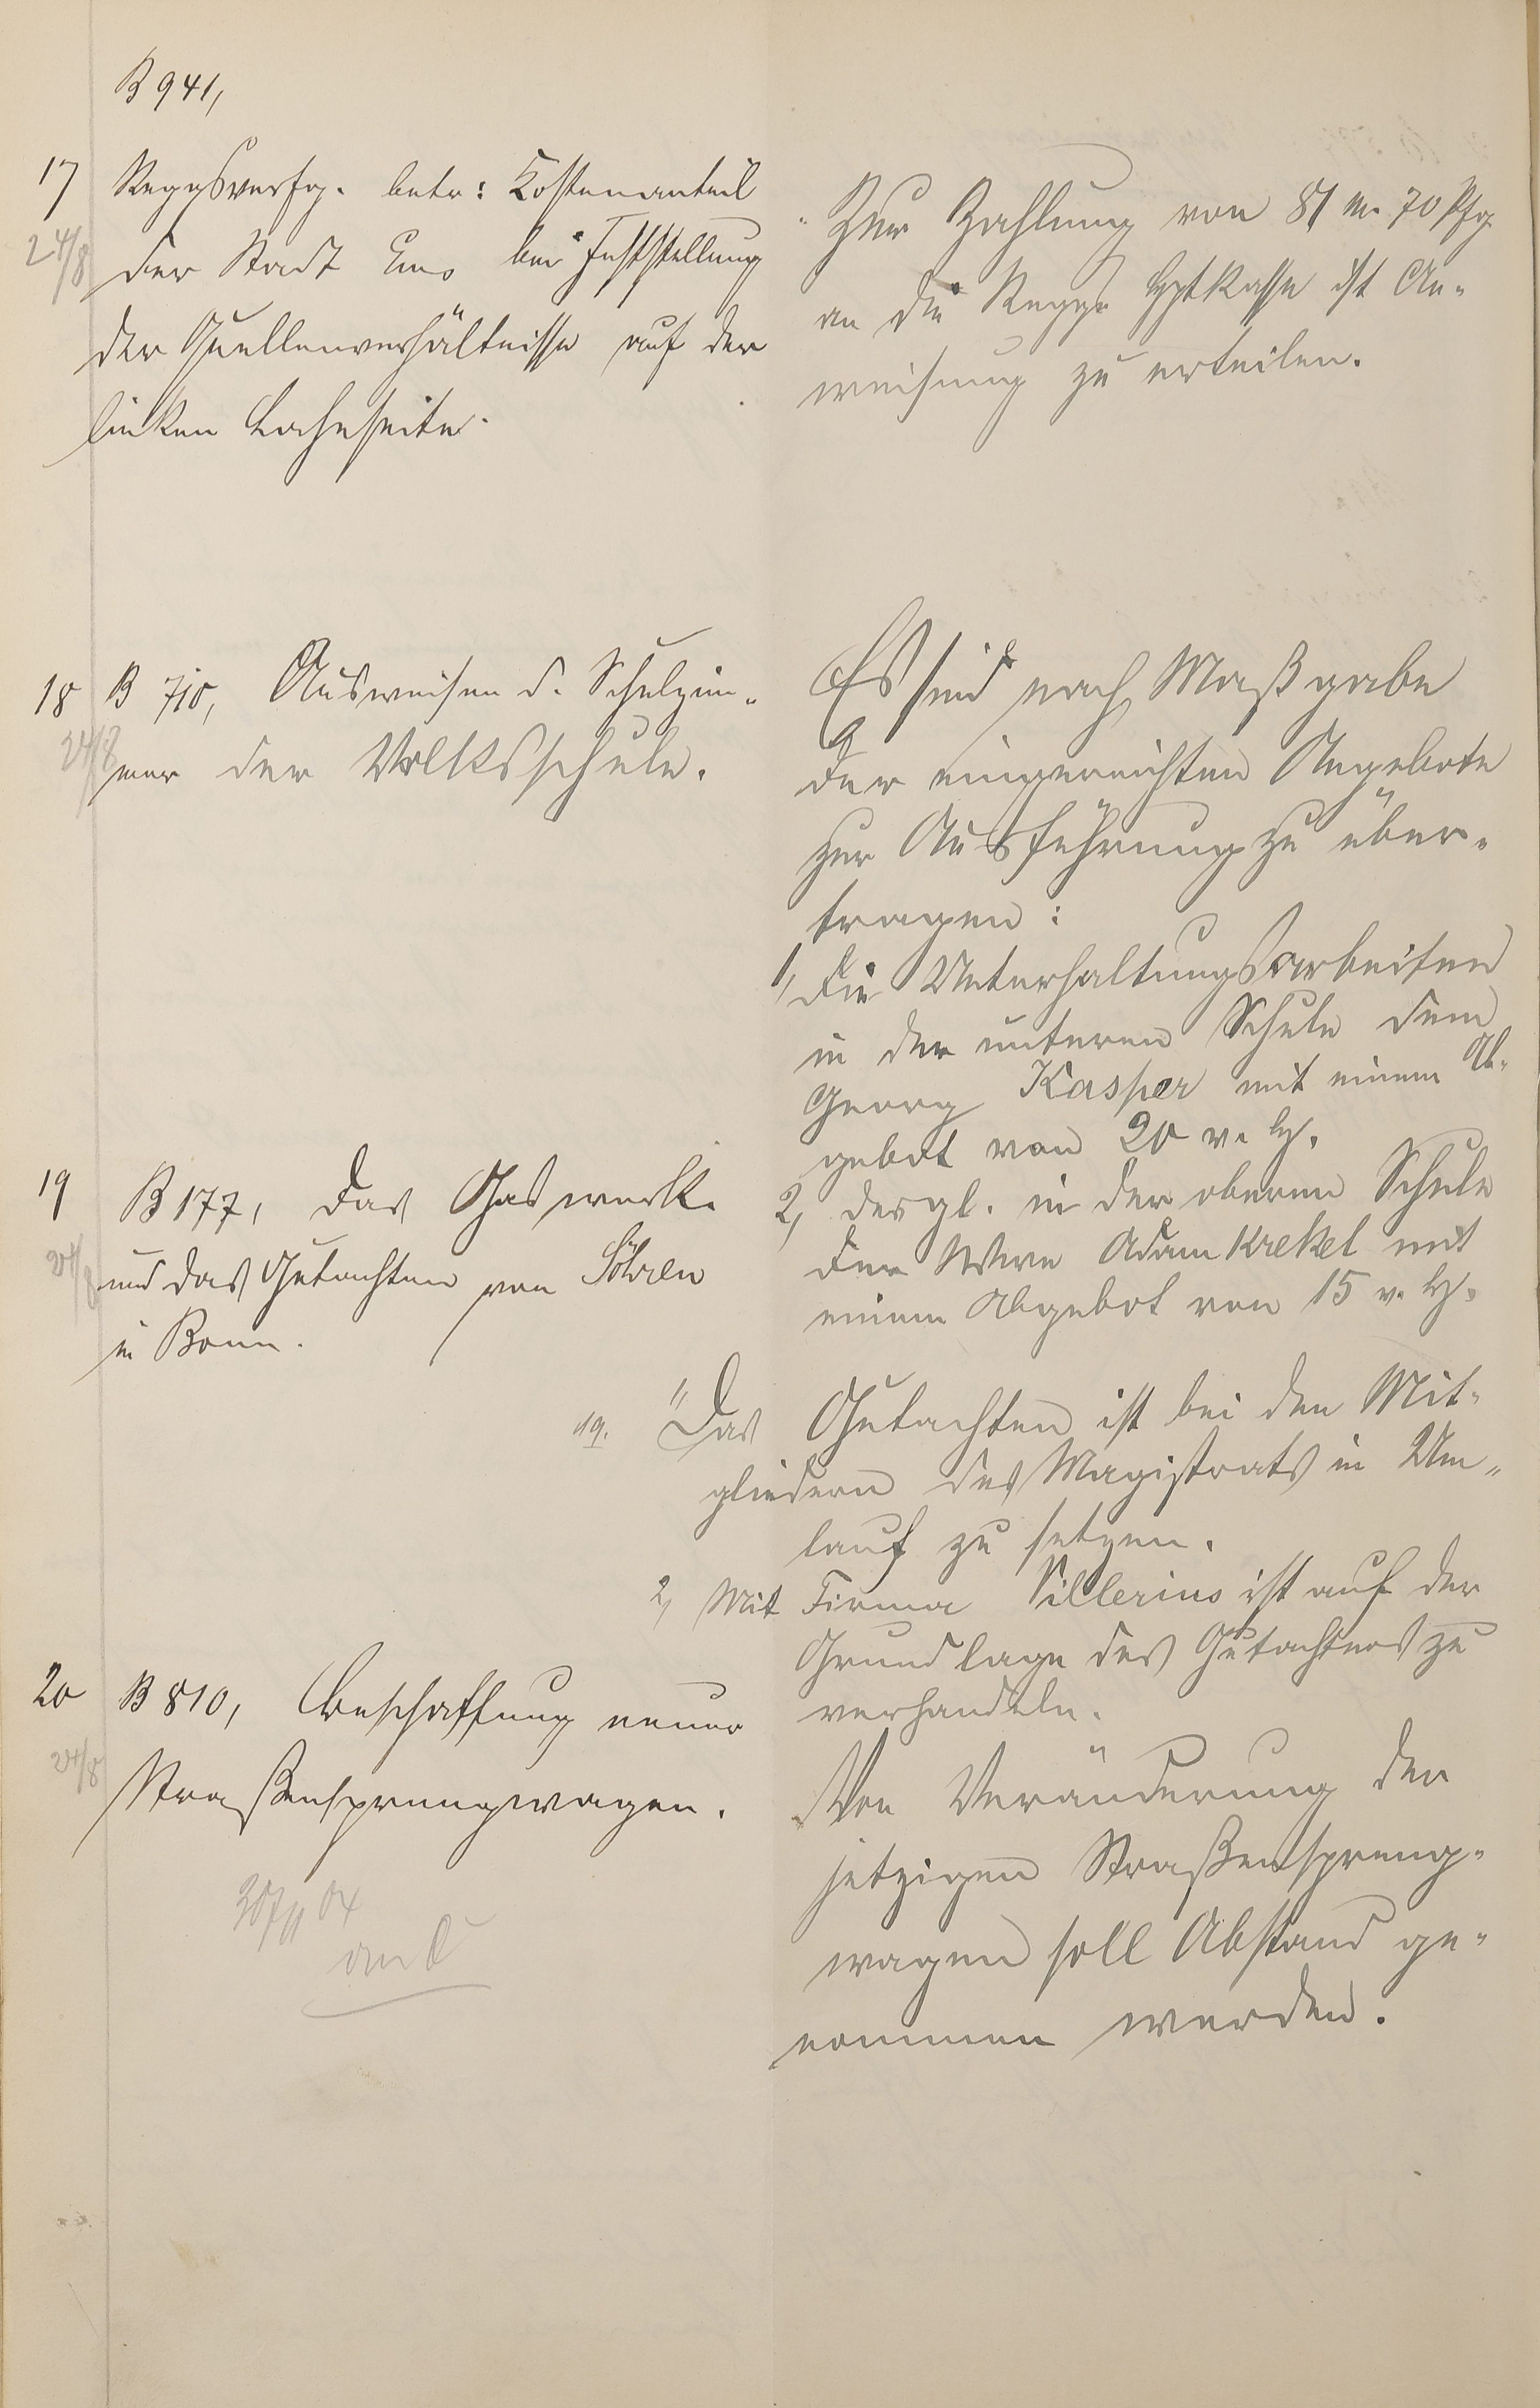 B 941,
17 Reggsverfg. betr: Kostenanteil
24/8 der Stadt Ems bei Feststellung
der Quellenverhältnisse auf der
linken Lahnseite.
Zur Zahlung von 81 M. 70 Pfg
an die Reggs Hptkasse ist An-
weisung zu erteilen.
18 B 710, Ausweißen d. Schulzim-
24/8 mer der Volksschule.
Es sind nach Maßgabe
der eingereichten Angebote
zur Ausführung zu über-
tragen:
1, die Unterhaltungsarbeiten
in der unteren Schule dem
Georg Kasper mit einem Ab-
gebot von 20 v. H.
2, desgl. in der oberen Schule
der Wwe Adam Krekel mit
einem Abgebot von 15 v. H.
19 B 177, das Gaswerk
24/8 und das Gutachten von Söhren
in Bonn.
19. Das Gutachten ist bei den Mit-
gliedern des Magistrats in Um-
lauf zu setzen.
2, Mit Firma Sillerius ist auf der
Grundlage des Gutachtens zu
verhandeln.
20 B 810, Beschaffung neuer
24/8 Straßensprengwagen.
Von Veränderung der
jetzigen Straßenspreng-
wagen soll Abstand ge-
nommen werden.